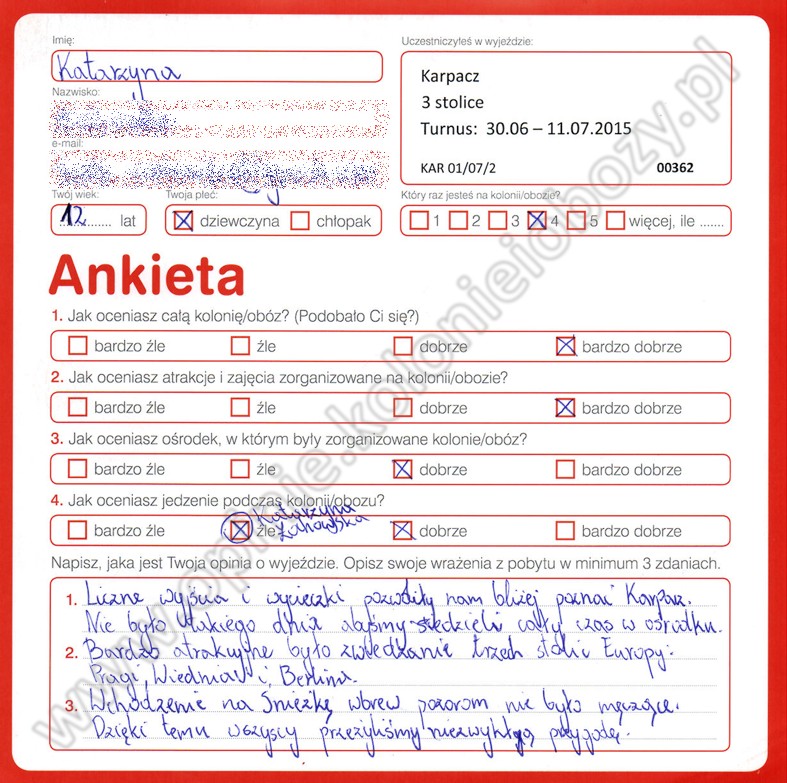 Imię:
Katarzyna
Nazwisko:
e-mail:
Twój wiek:
12 lat
Twoja płeć:
dziewczyna chłopak
Uczestniczyłeś w wyjeździe:
Karpacz
3 stolice
Turnus: 30.06 – 11.07.2015
KAR 01/07/2 00362
Który raz jesteś na kolonii/obozie?
1 2 3 4 5 więcej, ile .......
Ankieta
1. Jak oceniasz całą kolonię/obóz? (Podobało Ci się?)
bardzo źle źle dobrze bardzo dobrze
2. Jak oceniasz atrakcje i zajęcia zorganizowane na kolonii/obozie?
bardzo źle źle dobrze bardzo dobrze
3. Jak oceniasz ośrodek, w którym były zorganizowane kolonie/obóz?
bardzo źle źle dobrze bardzo dobrze
4. Jak oceniasz jedzenie podczas kolonii/obozu?
Katarzyna
bardzo źle źle dobrze bardzo dobrze
Napisz, jaka jest Twoja opinia o wyjeździe. Opisz swoje wrażenia z pobytu w minimum 3 zdaniach.
1. Liczne wyjścia i wycieczki pozwoliły nam bliżej poznać Karpacz.
Nie było takiego dnia abyśmy siedzieli cały czas w ośrodku.
2. Bardzo atrakcyjne było zwiedzanie trzech stolic Europy:
Pragi, Wiednia i Berlina.
3. Wchodzenie na Śnieżkę wbrew pozorom nie było męczące.
Dzięki temu wszyscy przeżyliśmy niezwykłą przygodę.
www.opinie.kolonieiobozy.pl